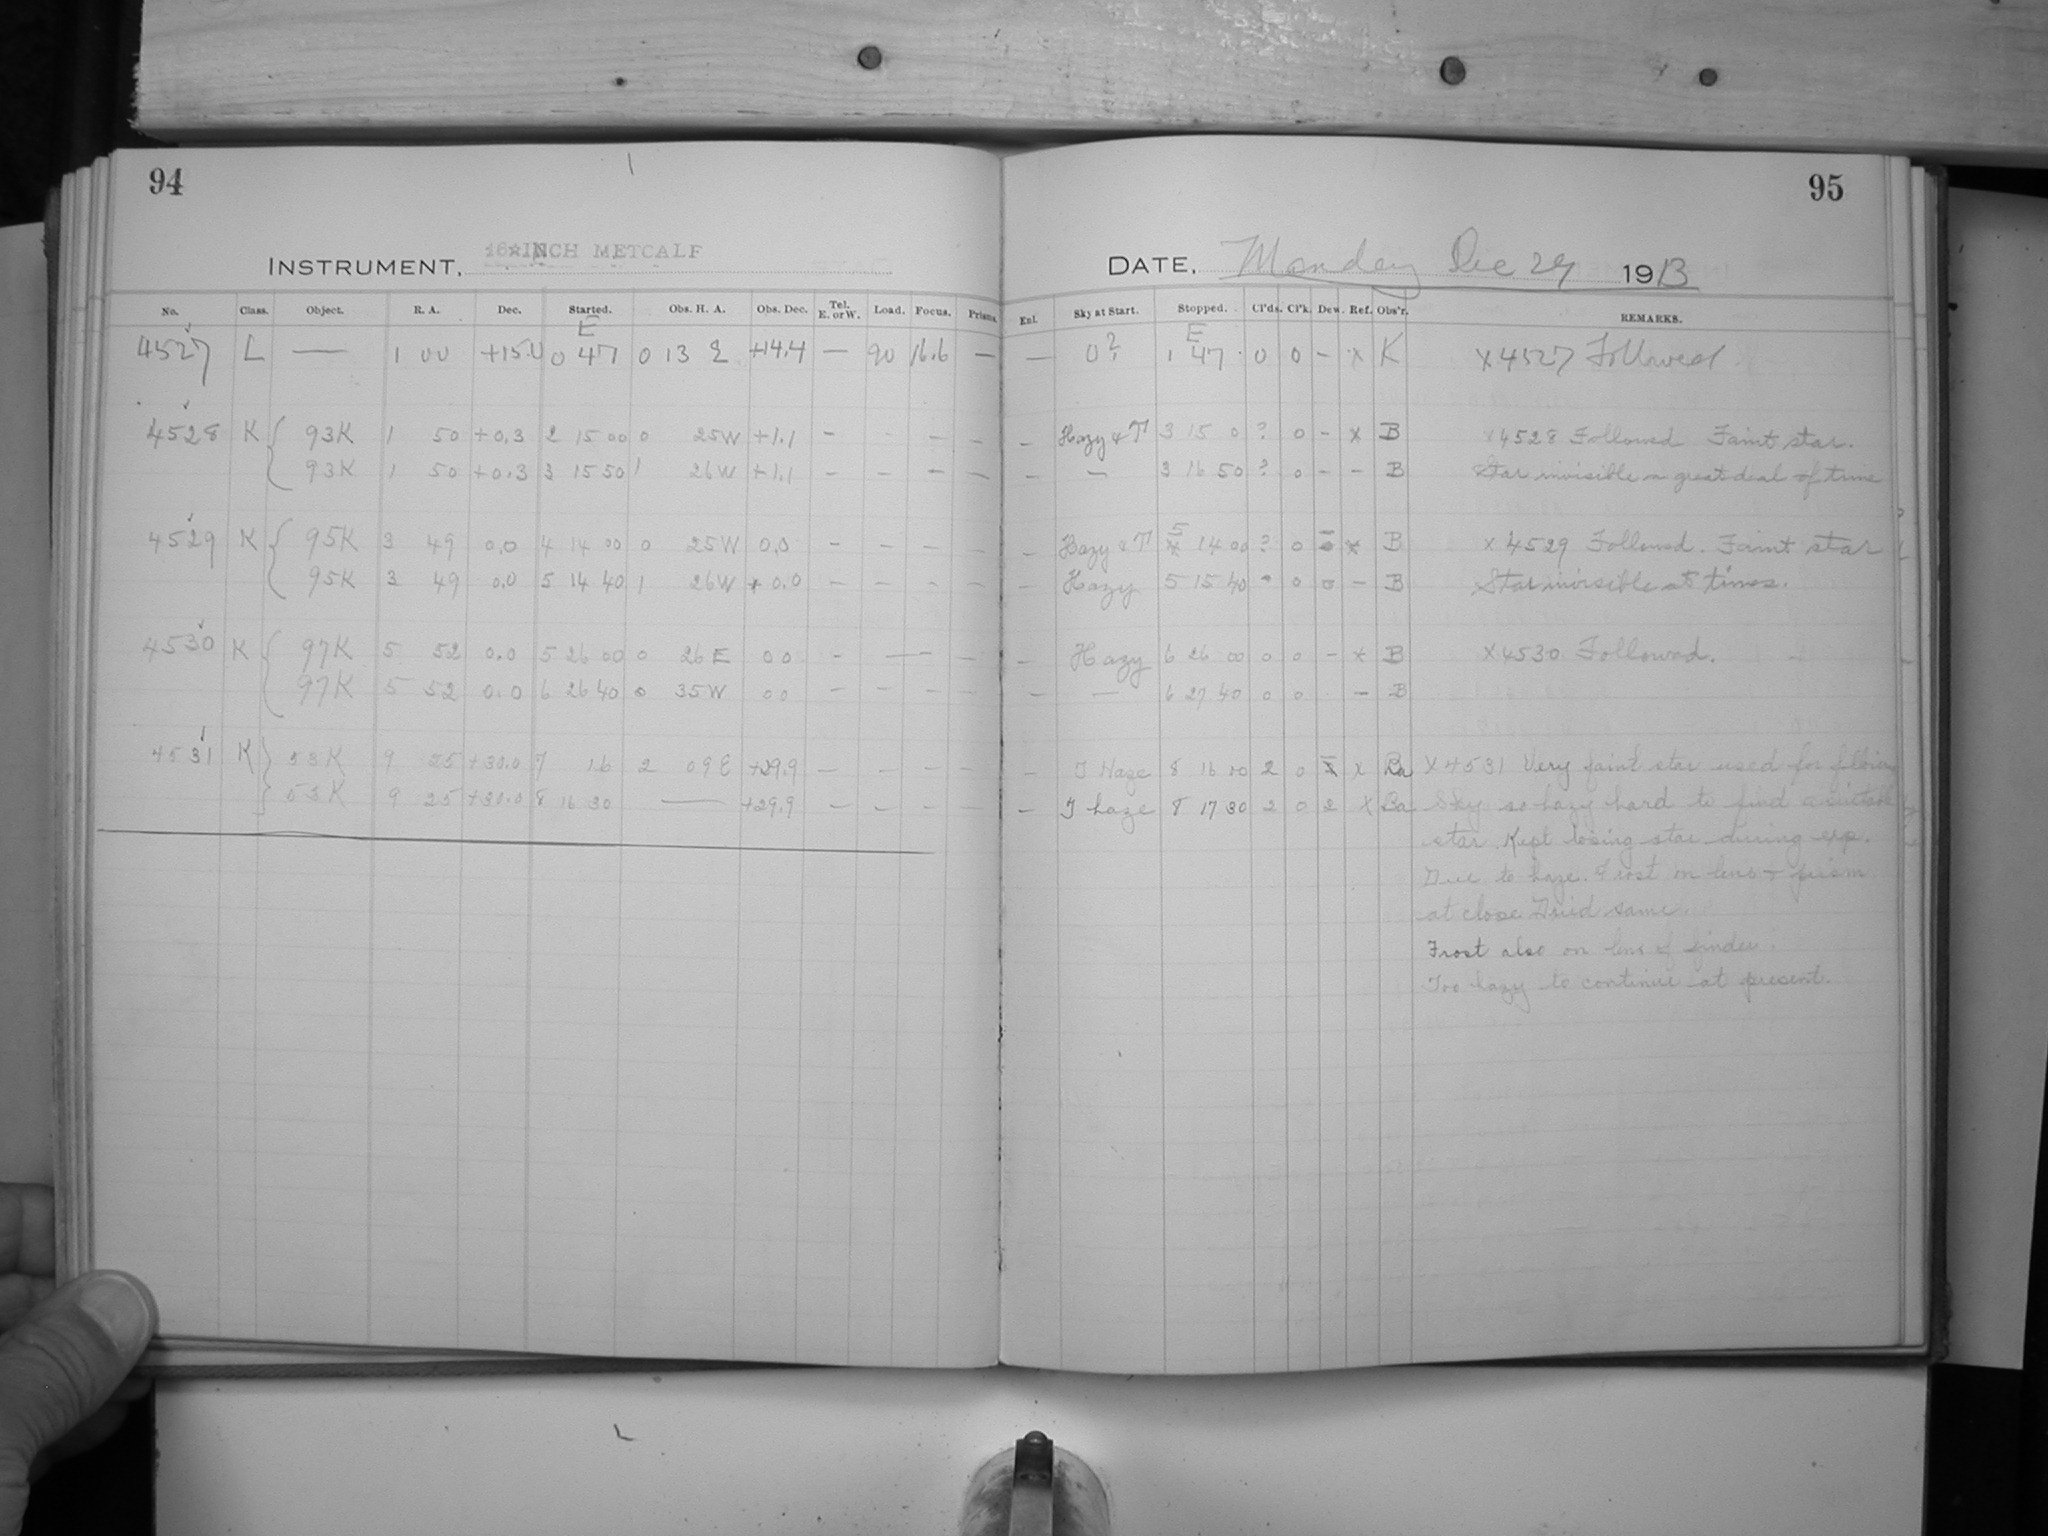 94
INSTRUMENT, 16-INCH METCALF
No. Class. Object. R. A. Dec. Started. Obs. H. A. Obs. Dec. Tel. E. or W. Load. Focus. Prisms.
E
4527 L — 1 00 +15.0 0 47 0 13 E +14.4 — 90 16.6 —
4528 K { 93K 1 50 +0.3 2 15 00 0 25W +1.1 – – – – –
93K 1 50 +0.3 3 15 50 1 26W +1.1 – – – – –
4529 K { 95K 3 49 0.0 4 14 00 0 25W 0.0 – – – – –
95K 3 49 0.0 5 14 40 1 26W + 0.0 – – – – –
4530 K { 97K 5 52 0.0 5 26 00 0 26E 00 – – – – –
97K 5 52 0.0 6 26 40 0 35W 00 – – – – –
4531 K } 53K 9 25 +30.0 7 16 2 09E +29.9 – – – – –
53K 9 25 +30.0 8 16 30 — +29.9 – – – – –
95
DATE, Monday Dec 29 1913
Enl. Sky at Start. Stopped. Cl'ds. Cl'k. Dew. Ref. Obs'r. REMARKS.
E
— 0? 1 47 0 0 – x K x4527 Followed
– Hazy & T 3 15 0 ? 0 – x B x4528 Followed Faint star.
– – 3 16 50 ? 0 – – B Star invisible a great deal of time
– Hazy & T 5 14 00 ? 0 0 x B x 4529 Followed. Faint star
– Hazy 5 15 40 0 0 – B Star invisible at times.
– Hazy 6 26 00 0 0 – x B x4530 Followed.
– — 6 27 40 0 0 – B
– T Haze 8 16 00 2 0 x Ba x4531 Very faint star used for following
– T haze 8 17 30 2 0 2 x Ba Sky so hazy hard to find a suitable
star. Kept losing star during exp.
Due to haze. Frost on lens + prism
at close Dried same.
Frost also on lens of finder.
Too hazy to continue at present.